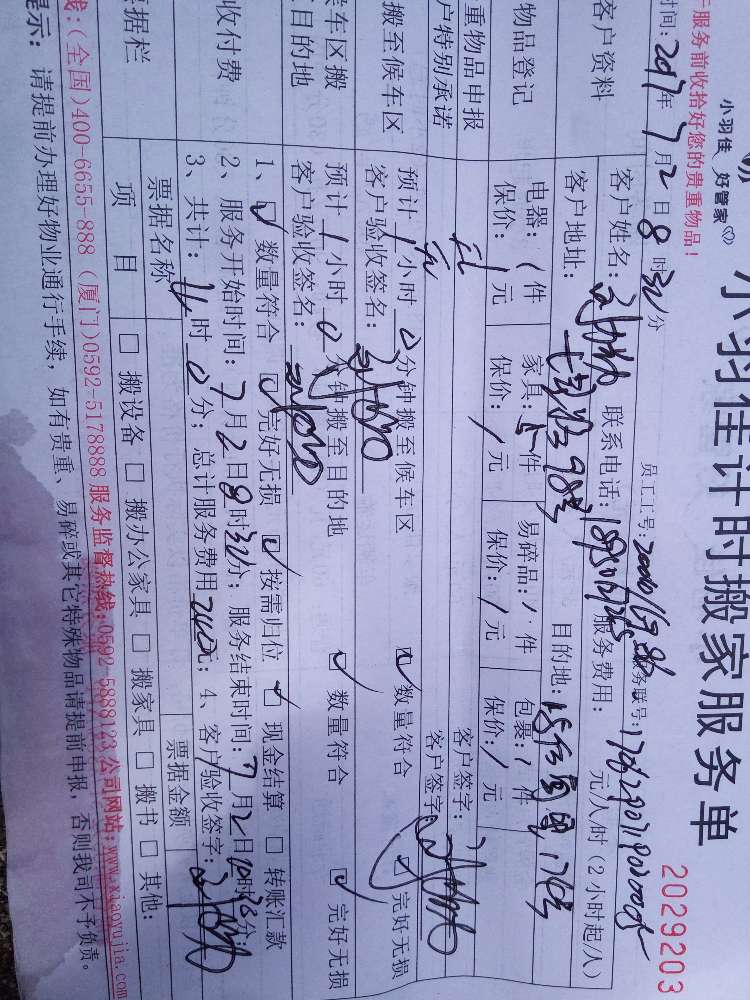 小羽佳计时搬家服务单
2029203
小羽佳 好管家
服务前收拾好您的贵重物品！
员工工号：
服务联号：
时间：2017年7月2日8时30分
客户资料
客户姓名：
联系电话：
服务费用： 元/人/时（2小时起/人）
客户地址：
目的地：
物品登记
电器：1件 家具：5件 易碎品：1件 包裹：1件
保价：/元 保价：/元 保价：/元 保价：/元
重物品申报
客户签字：
户特别承诺
客户签字：
搬至候车区
预计1小时0分钟搬至候车区 数量符合 完好无损
客户验收签名：
候车区搬
目的地
预计1小时0分钟搬至目的地 数量符合 完好无损
客户验收签名：
收付费
1、 数量符合 完好无损 按需归位 现金结算 转账汇款
2、服务开始时间：7月2日8时30分；服务结束时间：7月2日10时30分；
3、共计： 时0分；总计服务费用 元；4、客户验收签字：
票据栏
票据名称 票据金额
项目 搬设备 搬办公家具 搬家具 搬书 其他：
线：（全国）400-6655-888（厦门）0592-5178888 服务监督热线：0592-5888123 公司网站：www.xiaoyujia.com
提示：请提前办理好物业通行手续，如有贵重、易碎或其它特殊物品请提前申报，否则我司不予负责。